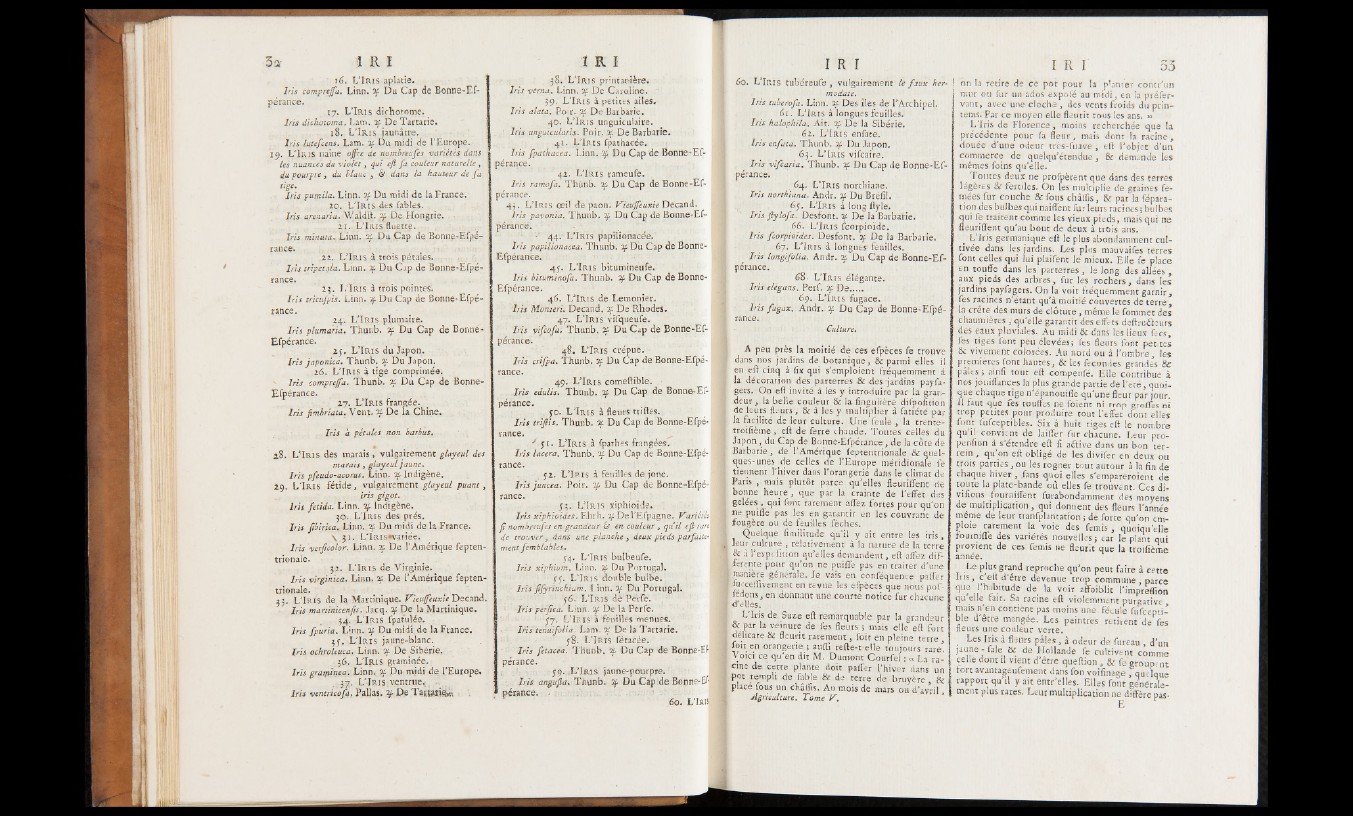 32 IRI
16. L'IRIS aplatie.
Iris compreſſa. Linn. ♃ Du Cap de Bonne-Eſ-
pérance.
17. L'IRIS dichotome.
Iris dichotoma. Lam. ♃ De Tartarie.
18. L'IRIS jaunâtre.
Iris luteſcens. Lam. ♃ Du midi de l'Europe.
19. L'IRIS naine offre de nombreuſes variétés dans
les nuances du violet, qui eſt ſa couleur naturelle,
du pourpre, du blanc, & dans la hauteur de ſa
tige.
Iris pumila. Linn. ♃ Du midi de la France.
20. L'IRIS des ſables.
Iris arenaria. Waldſt. ♃ De Hongrie.
21. L'IRIS fluette.
Iris minuta. Linn. ♃ Du Cap de Bonne-Eſpé-
rance.
22. L'IRIS à trois pétales.
Iris tripetala. Linn. ♃ Du Cap de Bonne-Eſpé-
rance.
23. L'IRIS à trois pointes.
Iris tricuſpis. Linn. ♃ Du Cap de Bonne-Eſpé-
rance.
24. L'IRIS plumaire.
Iris plumaria. Thunb. ♃ Du Cap de Bonne-
Eſpérance.
25. L'IRIS du Japon.
Iris japonica. Thunb. ♃ Du Japon.
26. L'IRIS à tige comprimée.
Iris compreſſa. Thunb. ♃ Du Cap de Bonne-
Eſpérance.
27. L'IRIS frangée.
Iris fimbriata. Vent. ♃ De la Chine.
Iris à pétales non barbus.
28. L'IRIS des marais, vulgairement glayeul des
marais, glayeul jaune.
Iris pſeudo-acorus. Linn. ♃ Indigène.
29. L'IRIS fétide, vulgairement glayeul puant,
iris gigot.
Iris fetida. Linn. ♃ Indigène.
30. L'IRIS des prés.
Iris ſibirica. Linn. ♃ Du midi de la France.
31. L'IRIS variée.
Iris verſicolor. Linn. ♃ De l'Amérique ſepten-
trionale.
32. L'IRIS de Virginie.
Iris virginica. Linn. ♃ De l'Amérique ſepten-
trionale.
33. L'IRIS de la Martinique. Vieuſſeuxie Decand.
Iris martinicenſis. Jacq. ♃ De la Martinique.
34. L'IRIS ſpatulée.
Iris ſpuria. Linn. ♃ Du midi de la France.
35. L'IRIS jaune-blanc.
Iris ochroleuca. Linn. ♃ De Sibérie.
36. L'IRIS graminée.
Iris graminea. Linn. ♃ Du midi de l'Europe.
37. L'IRIS ventrue.
Iris ventricoſa. Pallas. ♃ De Tartarie.
IRI
38. L'IRIS printanière.
Iris verna. Linn. ♃ De Caroline.
39. L'IRIS à petites ailes.
Iris alata. Poir. ♃ De Barbarie.
40. L'IRIS unguiculaire.
Iris unguicularis. Poir. ♃ De Barbarie.
41. L'IRIS ſpathacée.
Iris ſpathacea. Linn. ♃ Du Cap de Bonne-Eſ-
pérance.
42. L'IRIS rameuſe.
Iris ramoſa. Thunb. ♃ Du Cap de Bonne-Eſ-
pérance.
43. L'IRIS œil de paon. Vieuſſeuxie Décand.
Iris pavonia. Thunb. ♃ Du Cap de Bonne-Eſ-
pérance.
44. L'IRIS papilionacée.
Iris papilionacea. Thunb. ♃ Du Cap de Bonne-
Eſpérance.
45. L'IRIS bitumineuſe.
Iris bituminoſa. Thunb. ♃ Du Cap de Bonne-
Eſpérance.
46. L'IRIS de Lemonier.
Iris Monieri. Decand. ♃ De Rhodes.
47. L'IRIS viſqueuſe.
Iris viſcoſa. Thunb. ♃ Du Cap de Bonne-Eſ-
pérance.
48. L'IRIS crépue.
Iris criſpa. Thunb. ♃ Du Cap de Bonne-Eſpé-
rance.
49. L'IRIS comeſtible.
Iris edulis. Thunb. ♃ Du Cap de Bonne-Eſ-
pérance.
50. L'IRIS à fleurs triſtes.
Iris triſtis. Thunb. ♃ Du Cap de Bonne-Eſpé-
rance.
51. L'IRIS à ſpathes frangées.
Iris lacera. Thunb. ♃ Du Cap de Bonne-Eſpé-
rance.
52. L'IRIS à feuilles de jonc.
Iris juncea. Poir. ♃ Du Cap de Bonne-Eſpé-
rance.
53. L'IRIS xiphioïde.
Iris xiphioides. Ehrh. ♃ De l'Eſpagne. Variétés
ſi nombreuſes en grandeur & en couleur, qu'il eſt rare
de trouver, dans une planche, deux pieds parfaite-
ment ſemblables.
54. L'IRIS bulbeuſe.
Iris xiphium. Linn. ♃ Du Portugal.
55. L'IRIS double bulbe.
Iris ſiſyrinchium. Linn. ♃ Du Portugal.
56. L'IRIS de Perſe.
Iris perſica. Linn. ♃ De la Perſe.
57. L'IRIS à feuilles menues.
Iris tenuifolia. Lam. ♃ De la Tartarie.
58. L'IRIS ſétacée.
Iris ſetacea. Thunb. ♃ Du Cap de Bonne-Eſ-
pérance.
59. L'IRIS jaune-pourpre.
Iris anguſta. Thunb. ♃ Du Cap de Bonne-Eſ-
pérance.
60. L'IRIS
IRI
60. L'IRIS tubéreuſe, vulgairement le faux her-
modate.
Iris tuberoſa. Linn. ♃ Des îles de l'Archipel.
61. L'IRIS à longues feuilles.
Iris halophila. Ait. ♃ De la Sibérie.
62. L'IRIS enſate.
Iris enſata. Thunb. ♃ Du Japon.
63. L'IRIS viſcaire.
Iris viſcaria. Thunb. ♃ Du Cap de Bonne-Eſ-
pérance.
64. L'IRIS northiane.
Iris northiana. Andr. ♃ Du Bréſil.
65. L'IRIS à long ſtyle.
Iris ſtyloſa. Desfont. ♃ De la Barbarie.
66. L'IRIS ſcorpioïde.
Iris ſcorpioides. Desfont. ♃ De la Barbarie.
67. L'IRIS à longues feuilles.
Iris longifolia. Andr. ♃ Du Cap de Bonne-Eſ-
pérance.
68. L'IRIS élégante.
Iris elegans. Perſ. ♃ De.....
69. L'IRIS fugace.
Iris fugax. Andr. ♃ Du Cap de Bonne-Eſpé-
rance.
Culture.
A peu près la moitié de ces eſpèces ſe trouve
dans nos jardins de botanique, & parmi elles il
en eſt cinq à ſix qui s'emploient fréquemment à
la décoration des parterres & des jardins payſa-
gers. On eſt invité à les y introduire par la gran-
deur, la belle couleur & la ſingulière diſpoſition
de leurs fleurs, & à les y multiplier à ſatiété par
la facilité de leur culture. Une ſeule, la trente-
troiſième, eſt de ſerre chaude. Toutes celles du
Japon, du Cap de Bonne-Eſpérance, de la côte de
Barbarie, de l'Amérique ſeptentrionale & quel-
ques-unes de celles de l'Europe méridionale ſe
tiennent l'hiver dans l'orangerie dans le climat de
Paris, mais plutôt parce qu'elles fleuriſſent de
bonne heure, que par la crainte de l'effet des
gelées, qui ſont rarement aſſez fortes pour qu'on
ne puiſſe pas les en garantir en les couvrant de
fougère ou de feuilles ſèches.
Quelque ſimilitude qu'il y ait entre les iris,
leur culture, relativement à la nature de la terre
& à l'expoſition qu'elles demandent, eſt aſſez dif-
férente pour qu'on ne puiſſe pas en traiter d'une
manière générale. Je vais en conſéquence paſſer
ſucceſſivement en revue les eſpèces que nous poſ-
ſédons, en donnant une courte notice ſur chacune
d'elles.
L'Iris de Suze eſt remarquable par la grandeur
& par la veinure de ſes fleurs; mais elle eſt fort
délicate & fleurit rarement, ſoit en pleine terre,
ſoit en orangerie; auſſi reſte-t-elle toujours rare.
Voici ce qu'en dit M. Dumont Courſet: « La ra-
cine de cette plante doit paſſer l'hiver dans un
pot rempli de ſable & de terre de bruyère, &
placé ſous un châſſis. Au mois de mars ou d'avril,
Agriculture. Tome V.
IRI 33
on la retire de ce pot pour la planter contr'un
mur ou ſur un ados expoſé au midi, en la préſer-
vant, avec une cloche, des vents froids du prin-
tems. Par ce moyen elle fleurit tous les ans. »
L'Iris de Florence, moins recherchée que la
précédente pour ſa fleur, mais dont la racine,
douée d'une odeur très-ſuave, eſt l'objet d'un
commerce de quelqu'étendue, & demande les
mêmes ſoins qu'elle.
Toutes deux ne proſpèrent que dans des terres
légères & fertiles. On les multiplie de graines ſe-
mées ſur couche & ſous châſſis, & par la ſépara-
tion des bulbes qui naiſſent ſur leurs racines; bulbes
qui ſe traitent comme les vieux pieds, mais qui ne
fleuriſſent qu'au bout de deux à trois ans.
L'Iris germanique eſt le plus abondamment cul-
tivée dans les jardins. Les plus mauvaiſes terres
ſont celles qui lui plaiſent le mieux. Elle ſe place
en touffe dans les parterres, le long des allées,
aux pieds des arbres, ſur les rochers, dans les
jardins payſagers. On la voit fréquemment garnir,
ſes racines n'étant qu'à moitié couvertes de terre,
la crête des murs de clôture, même le ſommet des
chaumières, qu'elle garantit des effets deſtructeurs
des eaux pluviales. Au midi & dans les lieux ſecs,
ſes tiges ſont peu élevées; ſes fleurs ſont petites
& vivement colorées. Au nord ou à l'ombre, les
premières ſont hautes, & les ſecondes grandes &
pâles; ainſi tout eſt compenſé. Elle contribue à
nos jouiſſances la plus grande partie de l'été, quoi-
que chaque tige n'épanouiſſe qu'une fleur par jour.
Il faut que ſes touffes ne ſoient ni trop groſſes ni
trop petites pour produire tout l'effet dont elles
ſont ſuſceptibles. Six à huit tiges eſt le nombre
qu'il convient de laiſſer ſur chacune. Leur pro-
penſion à s'étendre eſt ſi active dans un bon ter-
rein, qu'on eſt obligé de les diviſer en deux ou
trois parties, ou les rogner tout autour à la fin de
chaque hiver, ſans quoi elles s'empareroient de
toute la plate-bande où elles ſe trouvent. Ces di-
viſions fourniſſent ſurabondamment des moyens
de multiplication, qui donnent des fleurs l'année
même de leur tranſplantation; de ſorte qu'on em-
ploie rarement la voie des ſemis, quoiqu'elle
fourniſſe des variétés nouvelles; car le plant qui
provient de ces ſemis ne fleurit que la troiſième
année.
Le plus grand reproche qu'on peut faire à cette
Iris, c'eſt d'être devenue trop commune, parce
que l'habitude de la voir affoiblit l'impreſſion
qu'elle fait. Sa racine eſt violemment purgative,
mais n'en contient pas moins une fécule ſuſcepti-
ble d'être mangée. Les peintres retirent de ſes
fleurs une couleur verte.
Les Iris à fleurs pâles, à odeur de ſureau, d'un
jaune-ſale & de Hollande ſe cultivent comme
celle dont il vient d'être queſtion, & ſe groupent
fort avantageuſement dans ſon voiſinage, quelque
rapport qu'il y ait entr'elles. Elles ſont générale-
ment plus rares. Leur multiplication ne diffère pas
E